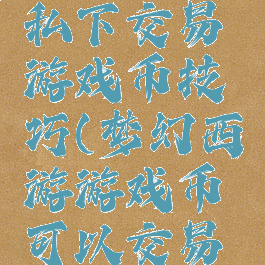 私下交易
游戏币技
巧(梦幻西
游游戏币
可以交易